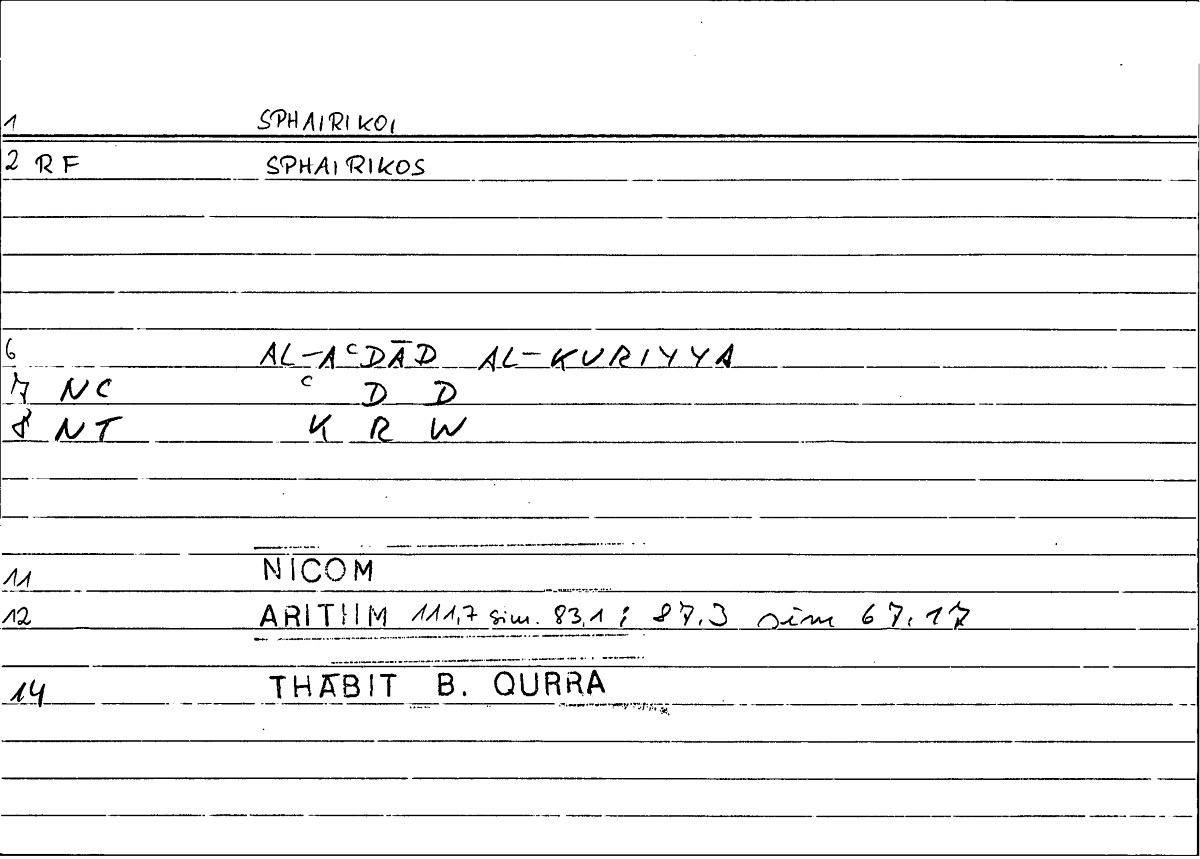 1 SPHAIRIKOI
2 RF SPHAIRIKOS
6 AL-AᶜDĀD AL-KURIYYA
7 NC ᶜ D D
8 NT K R W
11 NICOM
12 ARITHM 111,7 sim. 83,1 ; 87.3 sim 67.17
14 THĀBIT B. QURRA